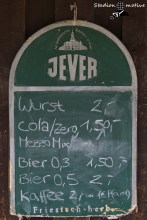 Stadionmotive
JEVER
Wurst 2,-
Cola/Zero 1,50,-
MezzoMix
Bier 0,3 1,50,-
Bier 0,5 2,-
Kaffee 2,- (+ Pfand)
Friesisch-herb.